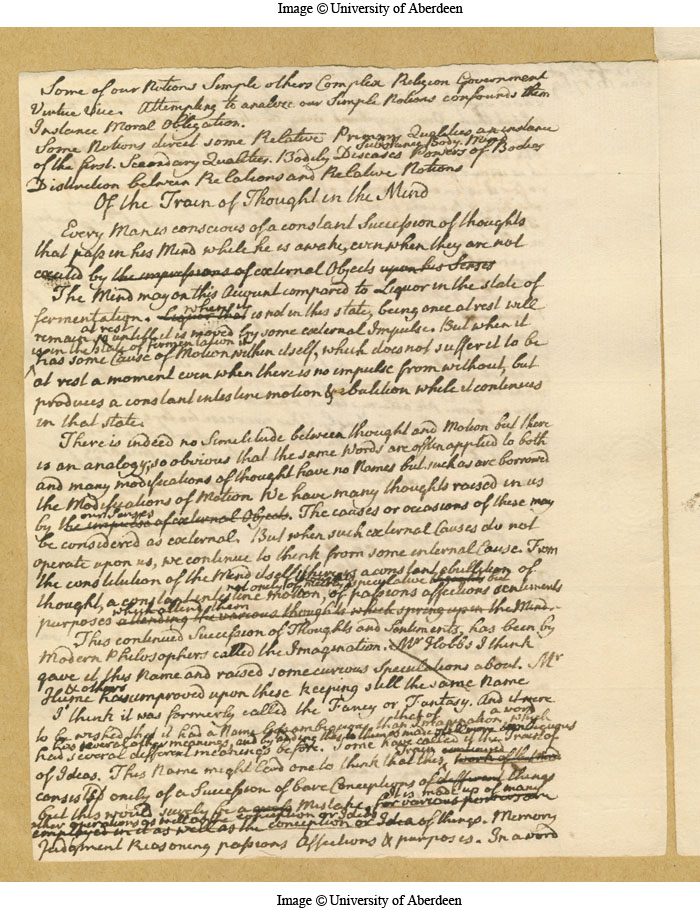 Image © University of Aberdeen
Some of our Notions Simple others Complex Religion Government
Virtue Vice. Attempting to analize our Simple Notions confounds them
Instance Moral Obligation.
Some Notions direct some Relative Primary Qualities an instance
Substance Body. Mind
of the first. Secondary Qualities. Bodily Diseases Powers of Bodies
Distinction between Relations and Relative Notions
Of the Train of Thought in the Mind
Every Man is conscious of a constant Succession of thoughts
that pass in his Mind while he is awake, even when they are not
excited by the impressions of external Objects upon his Senses
The Mind may on this Account compared to Liquor in the state of
when it
fermentation. Liquor that is not in this state, being once at rest will
at rest
remain so untill it is moved by some external Impulse. But when it
is in the state of fermentation it
has some Cause of Motion within itself, which does not suffer it to be
at rest a moment even when there is no impulse from without, but
produces a constant intestine motion & ebulition while it continues
in that state.
There is indeed no Similitude between thought and Motion but there
is an analogy, so obvious that the same Words are often applied to both
and many modifications of thought have no Names but such as are borrowed
the Modifications of Motion We have many thoughts raised in us
our Senses
by the impulse of external Objects. The causes or occasions of these may
be considered as external. But when such external Causes do not
operate upon us, we continue to think from some internal Cause. From
the constitution of the Mind itself there is a constant ebullition of
not only of speculative but
thought, a constant intestine motion, of passions affections sentiments
which attend them
purposes attending the various thoughts which spring up in the Mind.
This continued Succession of Thoughts and Sentiments, has been by
Modern Philosophers called the Imagination. Mr Hobbs I think
gave it this Name and raised some curious Speculations about. Mr
& others
Hume has improved upon these keeping still the same Name
I think it was formerly called the Fancy or Fantasy. And it were
to be wished that it had a Name less ambiguous than that of Imagination, a word which
has several other meanings, and
had several different meanings before. Some have called it the Train of
Train
of Ideas. This Name might lead one to think that this
consisted only of a Succession of bare Conceptions of different things
It is made up of many
but this would surely be a Mistake, for various
other operations as well as of the conception or Ideas
employed in it as well as the conception or Idea of things. Memory
Judgment Reasoning passions Affections & purposes. In a word
Image © University of Aberdeen